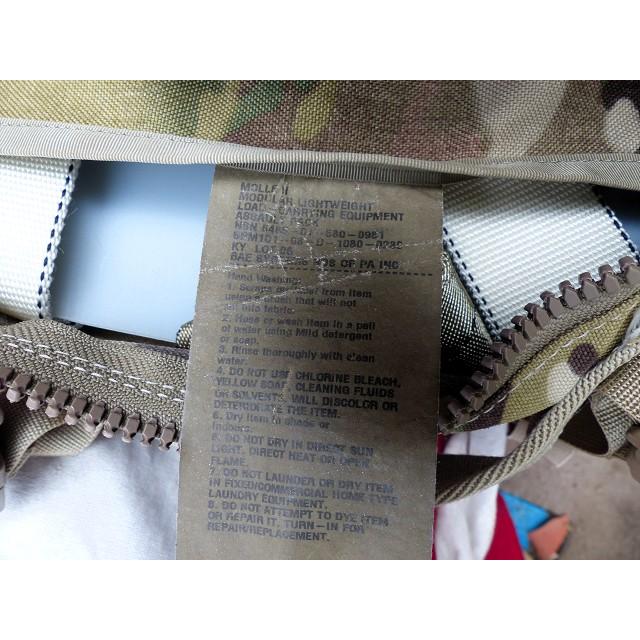 MOLLE II
MODULAR LIGHTWEIGHT
LOAD-CARRYING EQUIPMENT
ASSAULT PACK
NSN 8465-01-580-0981
1080-0280
KY
BAE OF PA INC.
Hand Washing:
1. Scrape from item
using a brush that will not
fabric.
2. Hose or wash item in a pail
of water using Mild detergent
or soap.
3. Rinse thoroughly with clean
water.
4. DO NOT USE CHLORINE BLEACH,
YELLOW SOAP, CLEANING FLUIDS
OR SOLVENTS. WILL DISCOLOR OR
DETERIORATE THE ITEM.
5. Dry item in shade or
indoors.
6. DO NOT DRY IN DIRECT SUN
LIGHT, DIRECT HEAT OR OPEN
FLAME.
7. DO NOT LAUNDER OR DRY ITEM
IN FIXED/COMMERCIAL HOME TYPE
LAUNDRY EQUIPMENT.
8. DO NOT ATTEMPT TO DYE ITEM
OR REPAIR IT. TURN-IN FOR
REPAIR/REPLACEMENT.